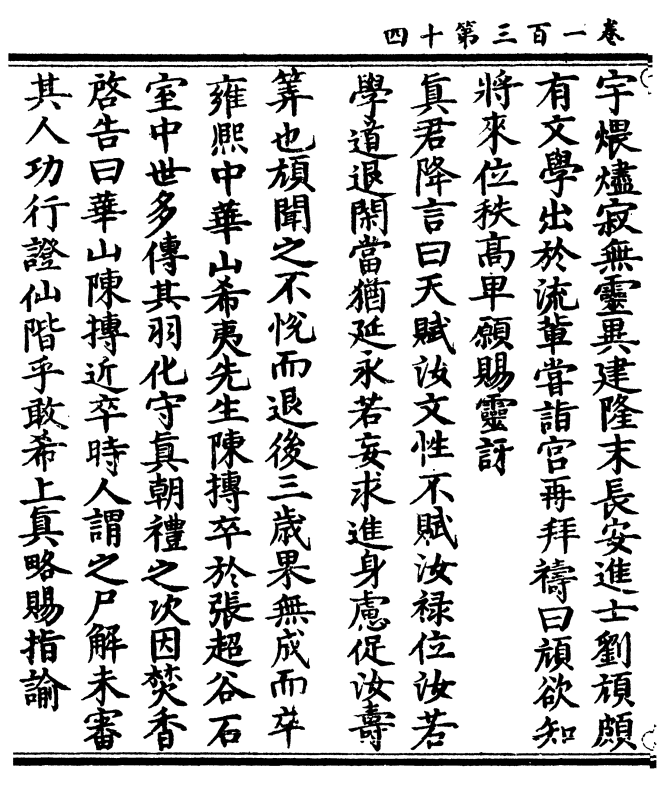 卷一百三第十四
宇煨燼寂無靈異建隆末長安進士劉頏頗
有文學出於流軰甞詣宫再拜禱曰頏欲知
將來位秩高卑願賜靈訝
真君降言曰天賦汝文性不賦汝禄位汝若
學道退閑當猶延永若妄求進身慮促汝壽
筭也頏聞之不悅而退後三歳果無成而卒
雍熈中華山希夷先生陳摶卒於張超谷石
室中世多傳其羽化守真朝禮之次因焚香
啓告曰華山陳摶近卒時人謂之尸解未審
其人功行證仙階乎敢希上真略賜指諭